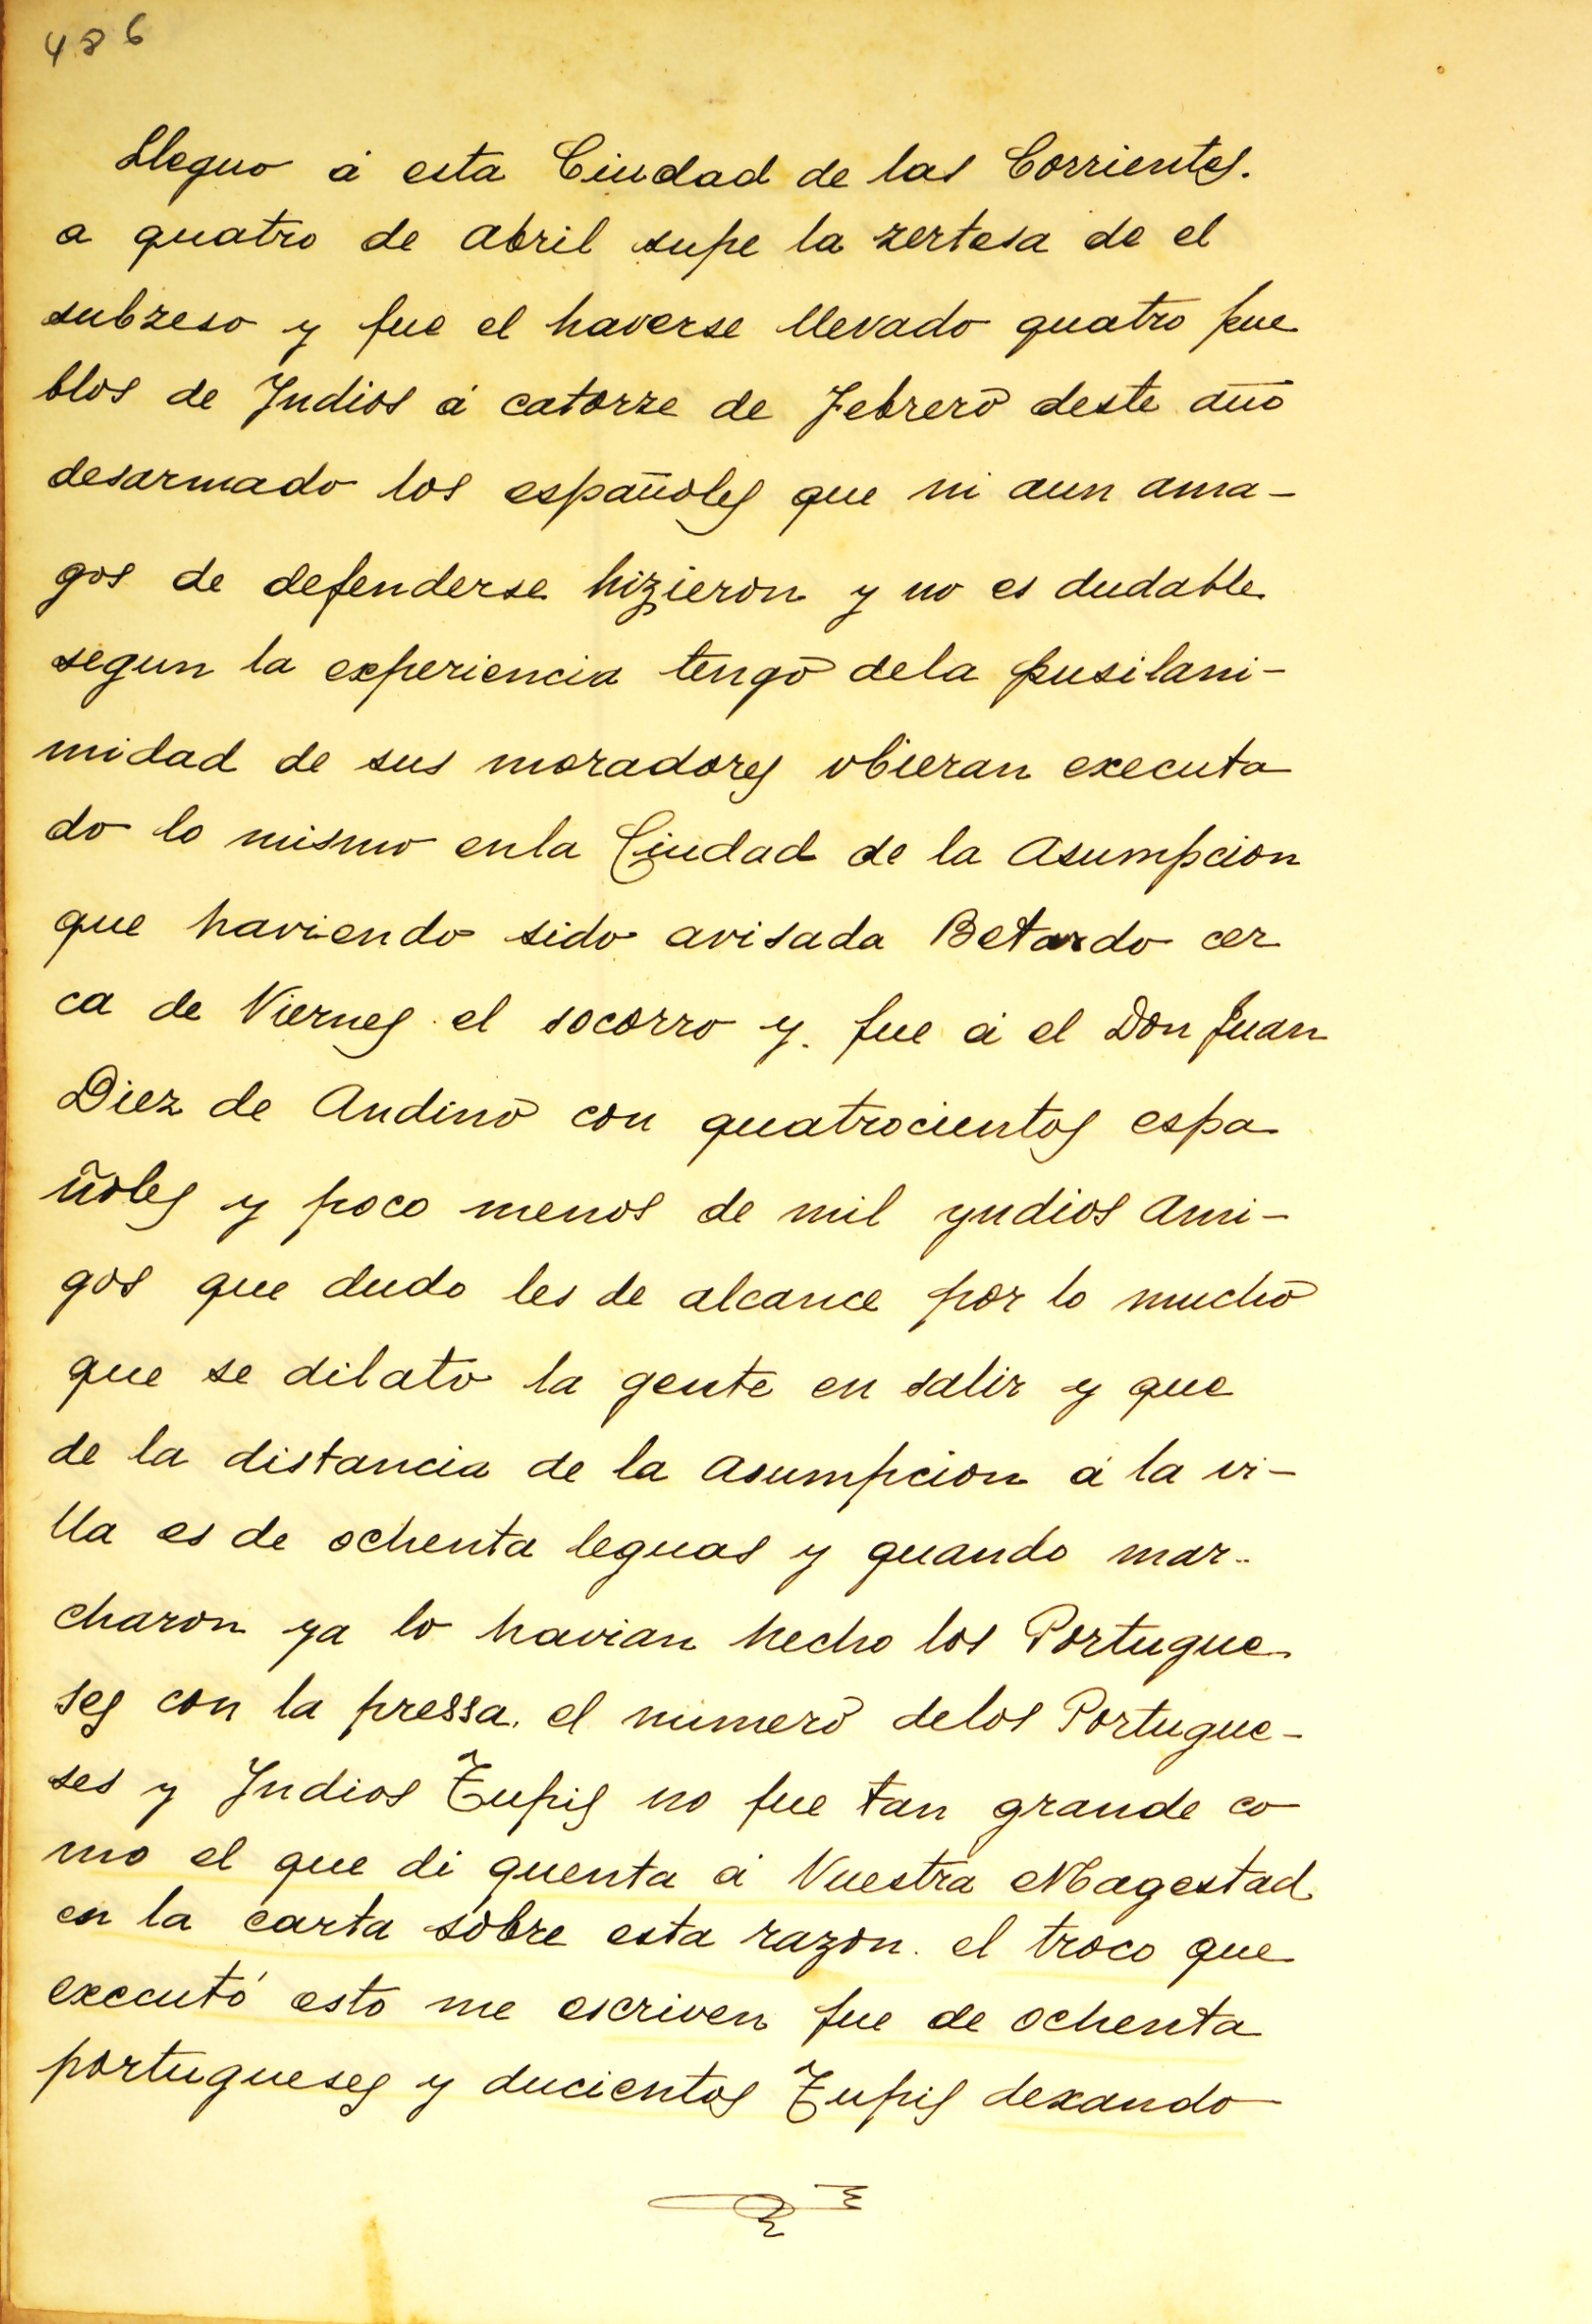 486
Lleguo á esta Ciudad de las Corrientes.
a quatro de abril supe la zertesa de el
subzeso y fue el haverse llevado quatro pue
blos de Yndios á catorze de Febrero deste año
desarmado los españoles que ni aun ama-
gos de defenderse hizieron y no es dudable
segun la experiencia tengo dela pusilani-
midad de sus moradores obieran executa
do lo mismo enla Ciudad de la Asumpcion
que haviendo sido avisada Betardo cer
ca de Viernes el socorro y. fue á el Don Juan
Diez de Andino con quatrocientos espa
ñoles y poco menos de mil yndios Ami-
gos que dudo les de alcance por lo mucho
que se dilato la gente en salir y que
de la distancia de la Asumpcion á la vi-
lla es de ochenta leguas y quando mar-
charon ya lo havian hecho los Portugue
ses con la pressa. el numero delos Portugue-
ses y Yndios Tupis no fue tan grande co
mo el que di quenta á Vuestra Magestad
en la carta sobre esta razon. el troco que
executó esto me escriven fue de ochenta
portugueses y ducientos Tupis dexando